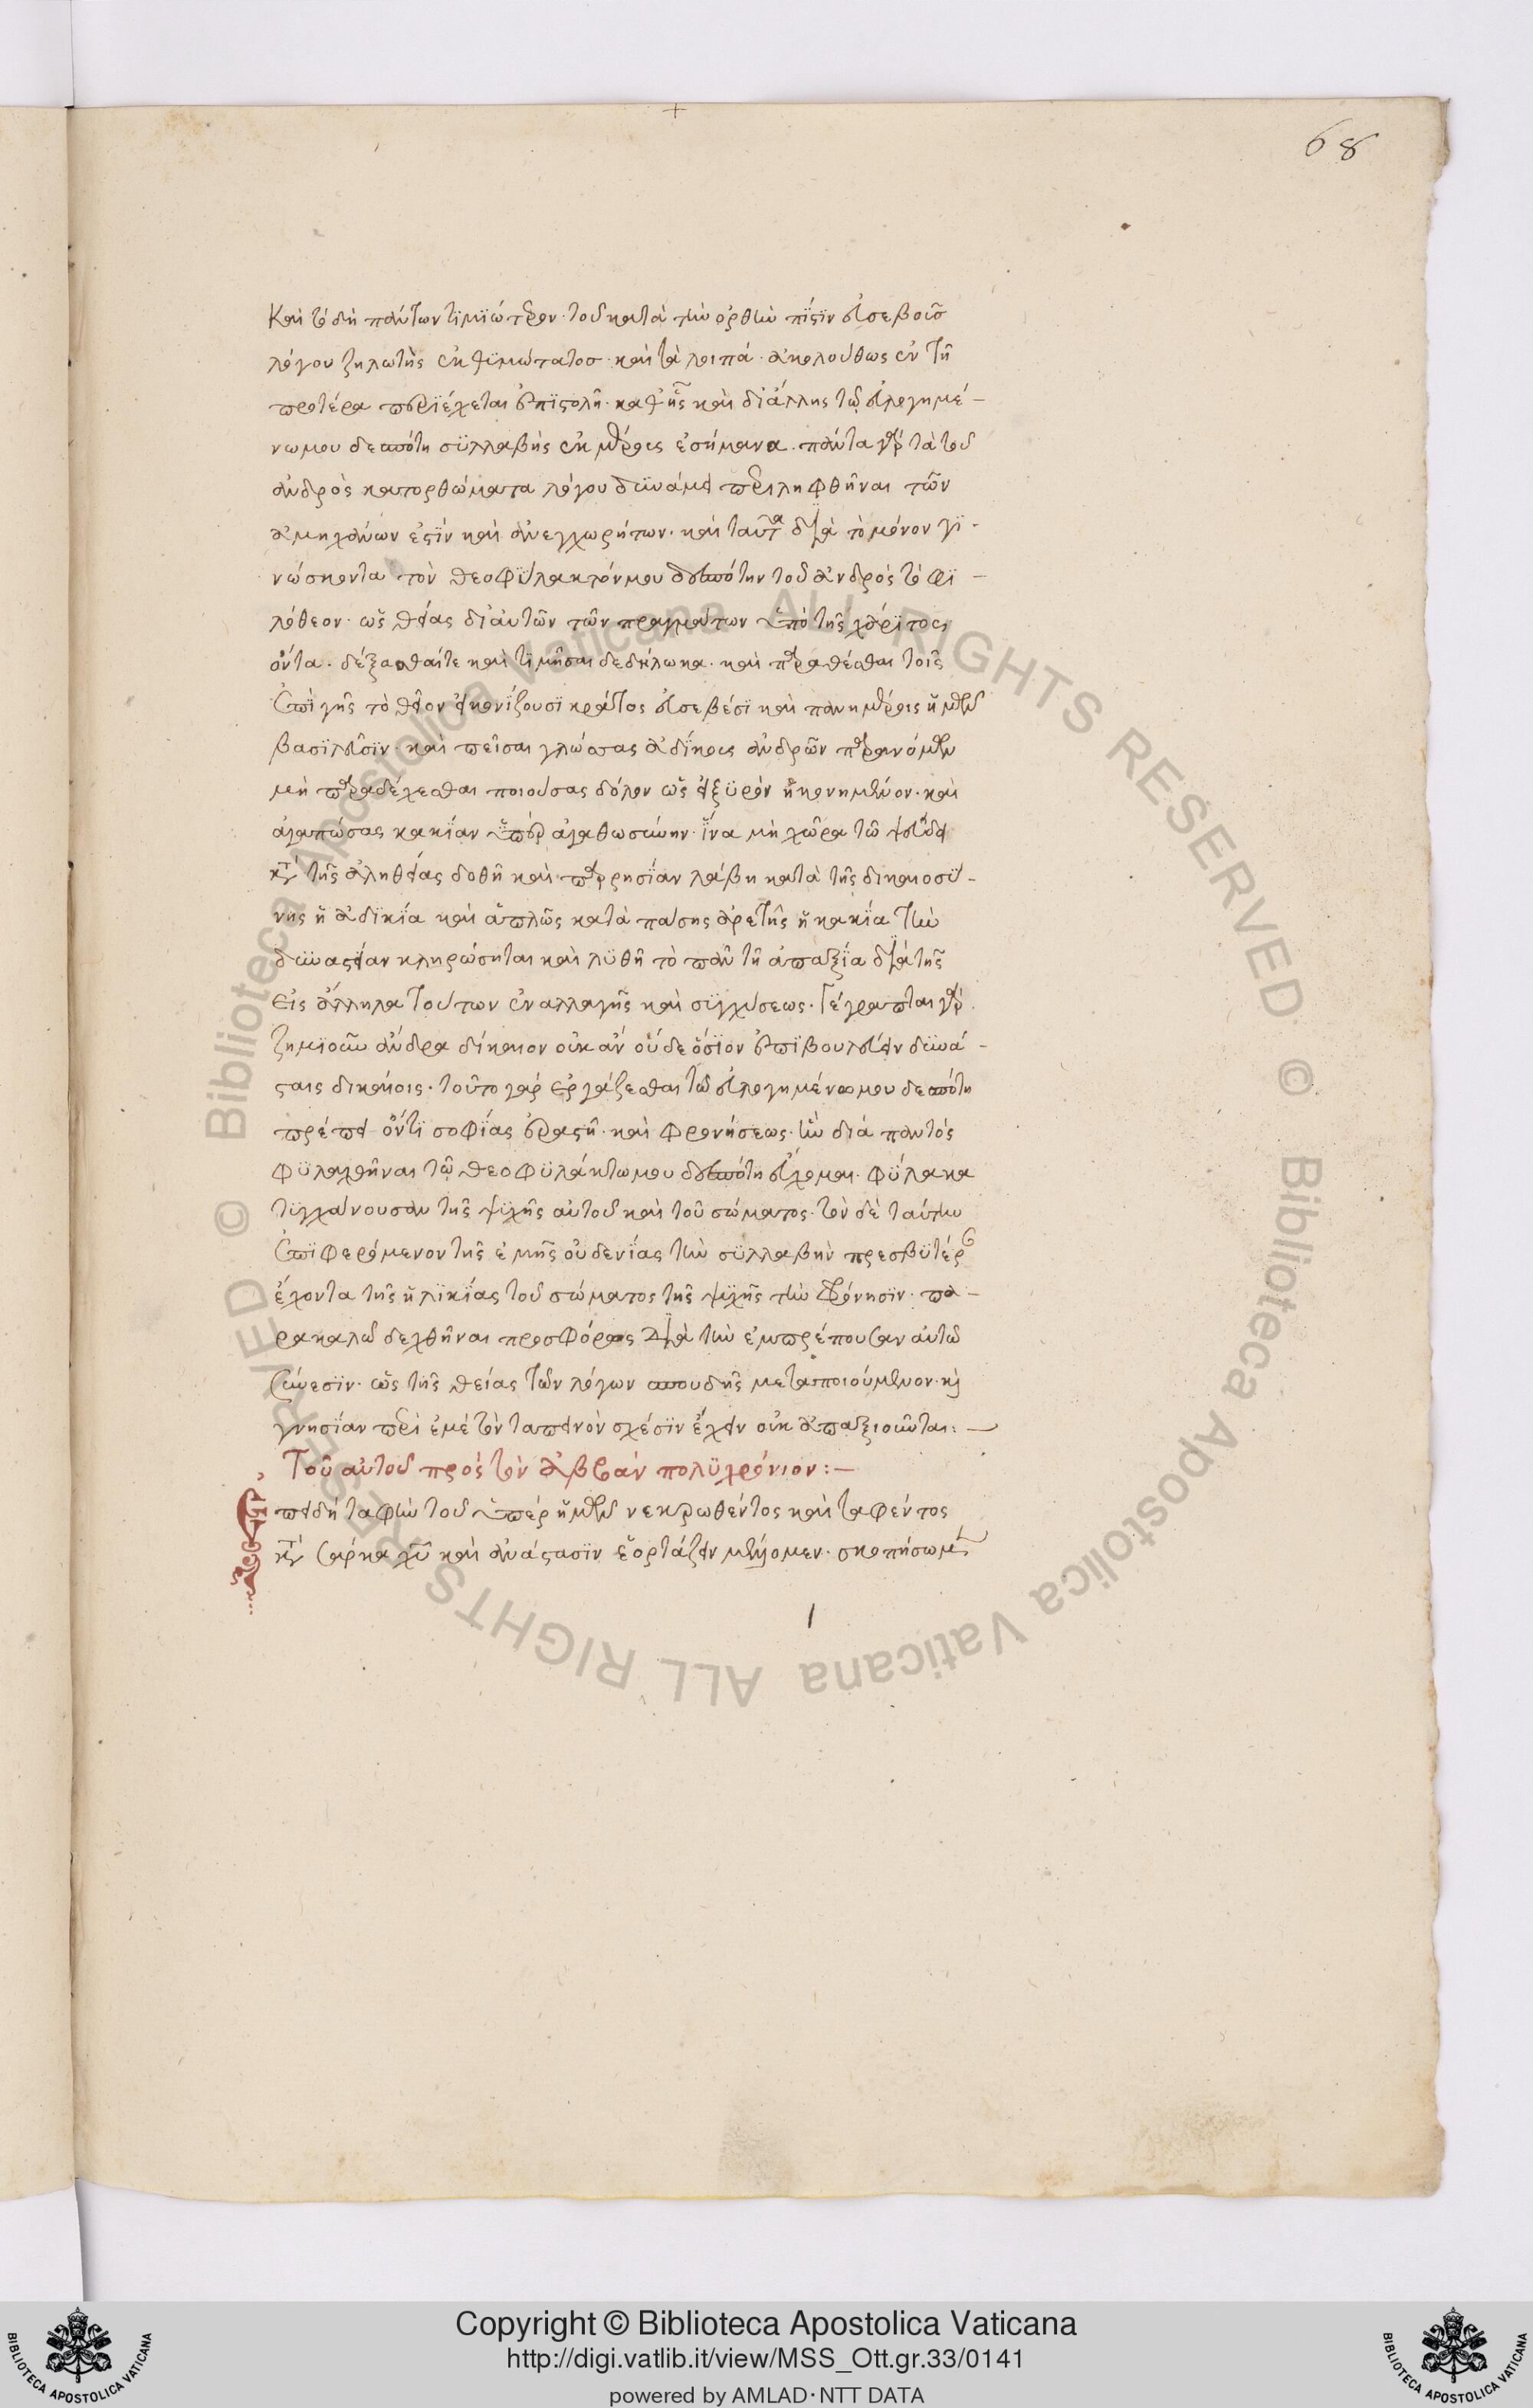 68
Καὶ τὸ δὴ πάντων τϊμϊώτερον· τοῦ κατὰ τὴν ὀρθὴν πίστϊν εὐσεβοῦσ
λόγου ζηλωτὴς ἐκθϋμώτατοσ· καὶ τὰ λοιπά· ἀκολούθως ἐν τῆ
προτέρα περϊέχεται ἐπϊστολῆ· καθ' ἧς καὶ δϊἄλλης τῶ εὐλογημέ-
νω μου δεσπότη σϋλλαβῆς ἐκ μέρους ἐσήμανα· πάντα γὰρ τὰ τοῦ
ἀνδρὸς κατορθώματα λόγου δυνάμει περιληφθῆναι τῶν
ἀμηχάνων ἐστϊν καὶ ἀνεγχωρήτων· καὶ ταῦτα διὰ τὸ μόνον γϊ-
νώσκοντα τὸν θεοφϋλακτόν μου δεσπότην τοῦ ἀνδρὸς τὸ φϊ-
λόθεον· ὡς θείας δι' αὐτῶν τῶν πραγμάτων ὑπὸ τῆς χάρϊτος
ὄντα· δέξασθαί τε καὶ τϊμῆσαι δεδήλωκα· καὶ παραθέσθαι τοῖς
ἐπὶ γῆς τὸ θεῖον εἰκονΐζουσϊ κράτος εὐσεβέσϊ καὶ πανημέροις ἡμῶν
βασϊλεῦσϊν· καὶ πεῖσαι γλώσσας ἀδΐκους ἀνδρῶν παρανόμων
μὴ παραδέχεσθαι ποιούσας δόλον ὡς εἰ ξϋρὸν ἠκονημένον· καὶ
ἀγαπώσας κακΐαν ὑπὲρ ἀγαθωσύνην· ἵνα μὴ χώρα τῶ ψεύδει
κατὰ τῆς ἀληθείας δοθῆ καὶ παρρησΐαν λάβη κατὰ τῆς δικαιοσύ-
νης ἡ ἀδϊκΐα καὶ ἁπλῶς κατὰ πάσης ἀρετῆς ἡ κακΐα τὴν
δυναστείαν κληρώσηται καὶ λϋθῆ τὸ πᾶν τῆ ἀταξΐα διὰ τῆς
εἰς ἄλληλα τούτων ἐναλλαγῆς καὶ σϋγχύσεως· Γέγραπται γὰρ
ζημϊοῦν ἄνδρα δίκαιον οὐ καλὸν οὐδε ὅσϊον ἐπϊβουλεύειν δϋνά-
σταις δικαίοις· τοῦτο γὰρ ἐργάζεσθαι τῶ εὐλογημένω μου δεσπότη
πρέπει ὄντϊ σοφΐας ἐραστῆ· καὶ φρονήσεως· ἣν διὰ παντὸς
φϋλαχθῆναι τῶ θεοφϋλάκτω μου δεσπότη εὔχομαι· φύλακα
τϋγχάνουσαν τῆς ψϋχῆς αὐτοῦ καὶ τοῦ σώματος· τὸν δὲ ταύτην
ἐπϊφερόμενον τῆς ἐμῆς οὐδενΐας τὴν σϋλλαβὴν πρεσβϋτέραν
ἔχοντα τῆς ἡλϊκΐας τοῦ σώματος τῆς ψϋχῆς τὴν φρόνησϊν· πα-
ρακαλῶ δεχθῆναι προσφόρως διὰ τὴν ἐμπρέπουσαν αὐτῶ
σύνεσϊν· ὡς τῆς θείας τῶν λόγων σπουδῆς μεταποιούμενον· καὶ
γνησΐαν περὶ ἐμὲ τὸν ταπεινὸν σχέσϊν ἔχειν οὐκ ἀπαξιοῦνται:—
Τοῦ αὐτοῦ πρὸς τὸν ἀββαν πολϋχρόνιον:—
Ἐπειδὴ ταφὴν τοῦ ὑπὲρ ἡμῶν νεκρωθέντος καὶ ταφέντος
κατὰ σάρκα χῦ καὶ ἀνάστασϊν ἑορτάζειν μέλλομεν· σκοπήσωμεν
Copyright © Biblioteca Apostolica Vaticana
http://digi.vatlib.it/view/MSS_Ott.gr.33/0141
powered by AMLAD·NTT DATA
BIBLIOTECA APOSTOLICA VATICANA
BIBLIOTECA APOSTOLICA VATICANA
© Biblioteca Apostolica Vaticana ALL RIGHTS RESERVED © Biblioteca Apostolica Vaticana ALL RIGHTS RESERVED